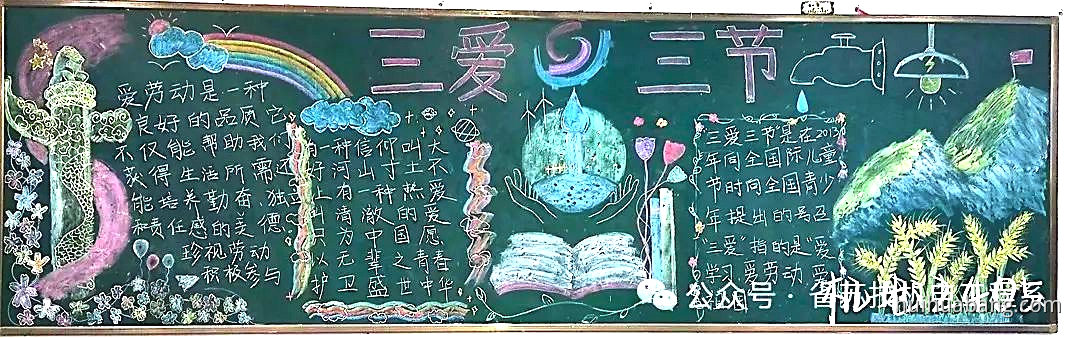 三爱 三节
爱劳动是一种
良好的品质它
不仅能帮助我们
获得生活所需还
能培养勤奋、独立
和责任感的美德。
珍视劳动
积极参与
有一种信仰叫大
好河山寸土不
让有一种热爱
叫清澈的爱
只为中国愿
以无辈之青春
护卫盛世中华
"三爱三节"是在2013
年向全国际儿童
节时向全国青少
年提出的号召
"三爱"指的是"爱
学习、爱劳动、爱
公众号·